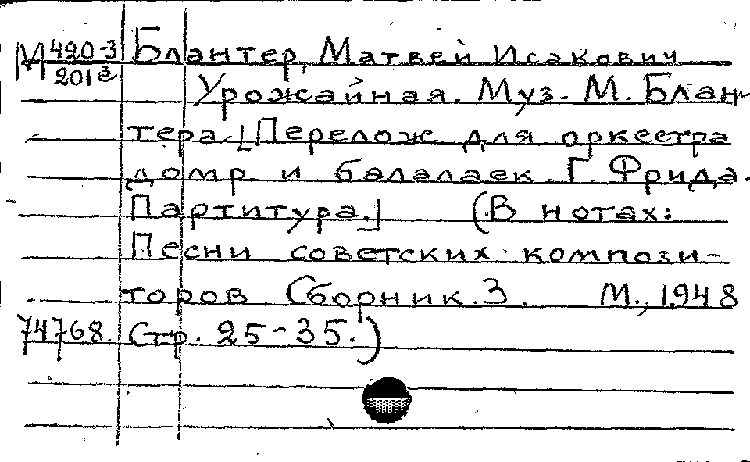 М 420-3 Блантер, Матвей Исакович
201а
Урожайная. Муз. М. Блан-
тера. [Перелож. для оркестра
домр и балалаек Г. Фрида.
Партитура.] (В нотах:
Песни советских компози-
торов Сборник 3. М., 1948
74768. Стр. 25-35.)